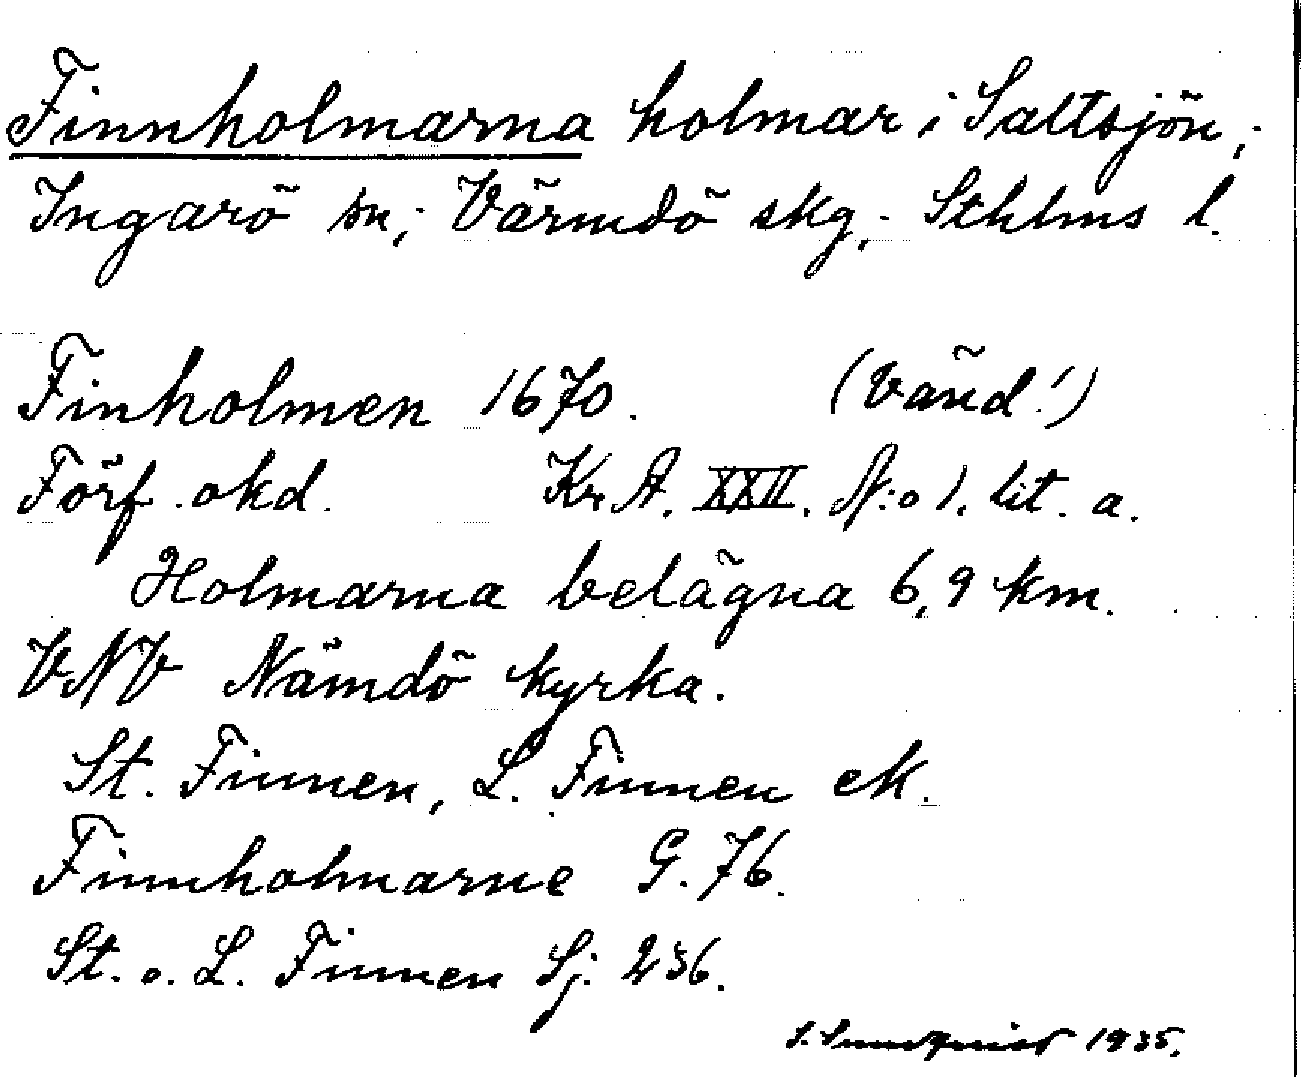 Finnholmarna holmar i Saltsjön;
Ingarö sn; Värmdö skg; Sthlms l.
Finholmen 1670. (Vänd!)
Förf. okd. Kr A. XXII. N:o 1. lit. a.
Holmarna belägna 6,9 km.
VNV Nämdö kyrka.
St. Finnen, L. Finnen ek.
Finnholmarne G. 76.
St. o. L. Finnen Sj. 236.
S. Sundquist 1935.